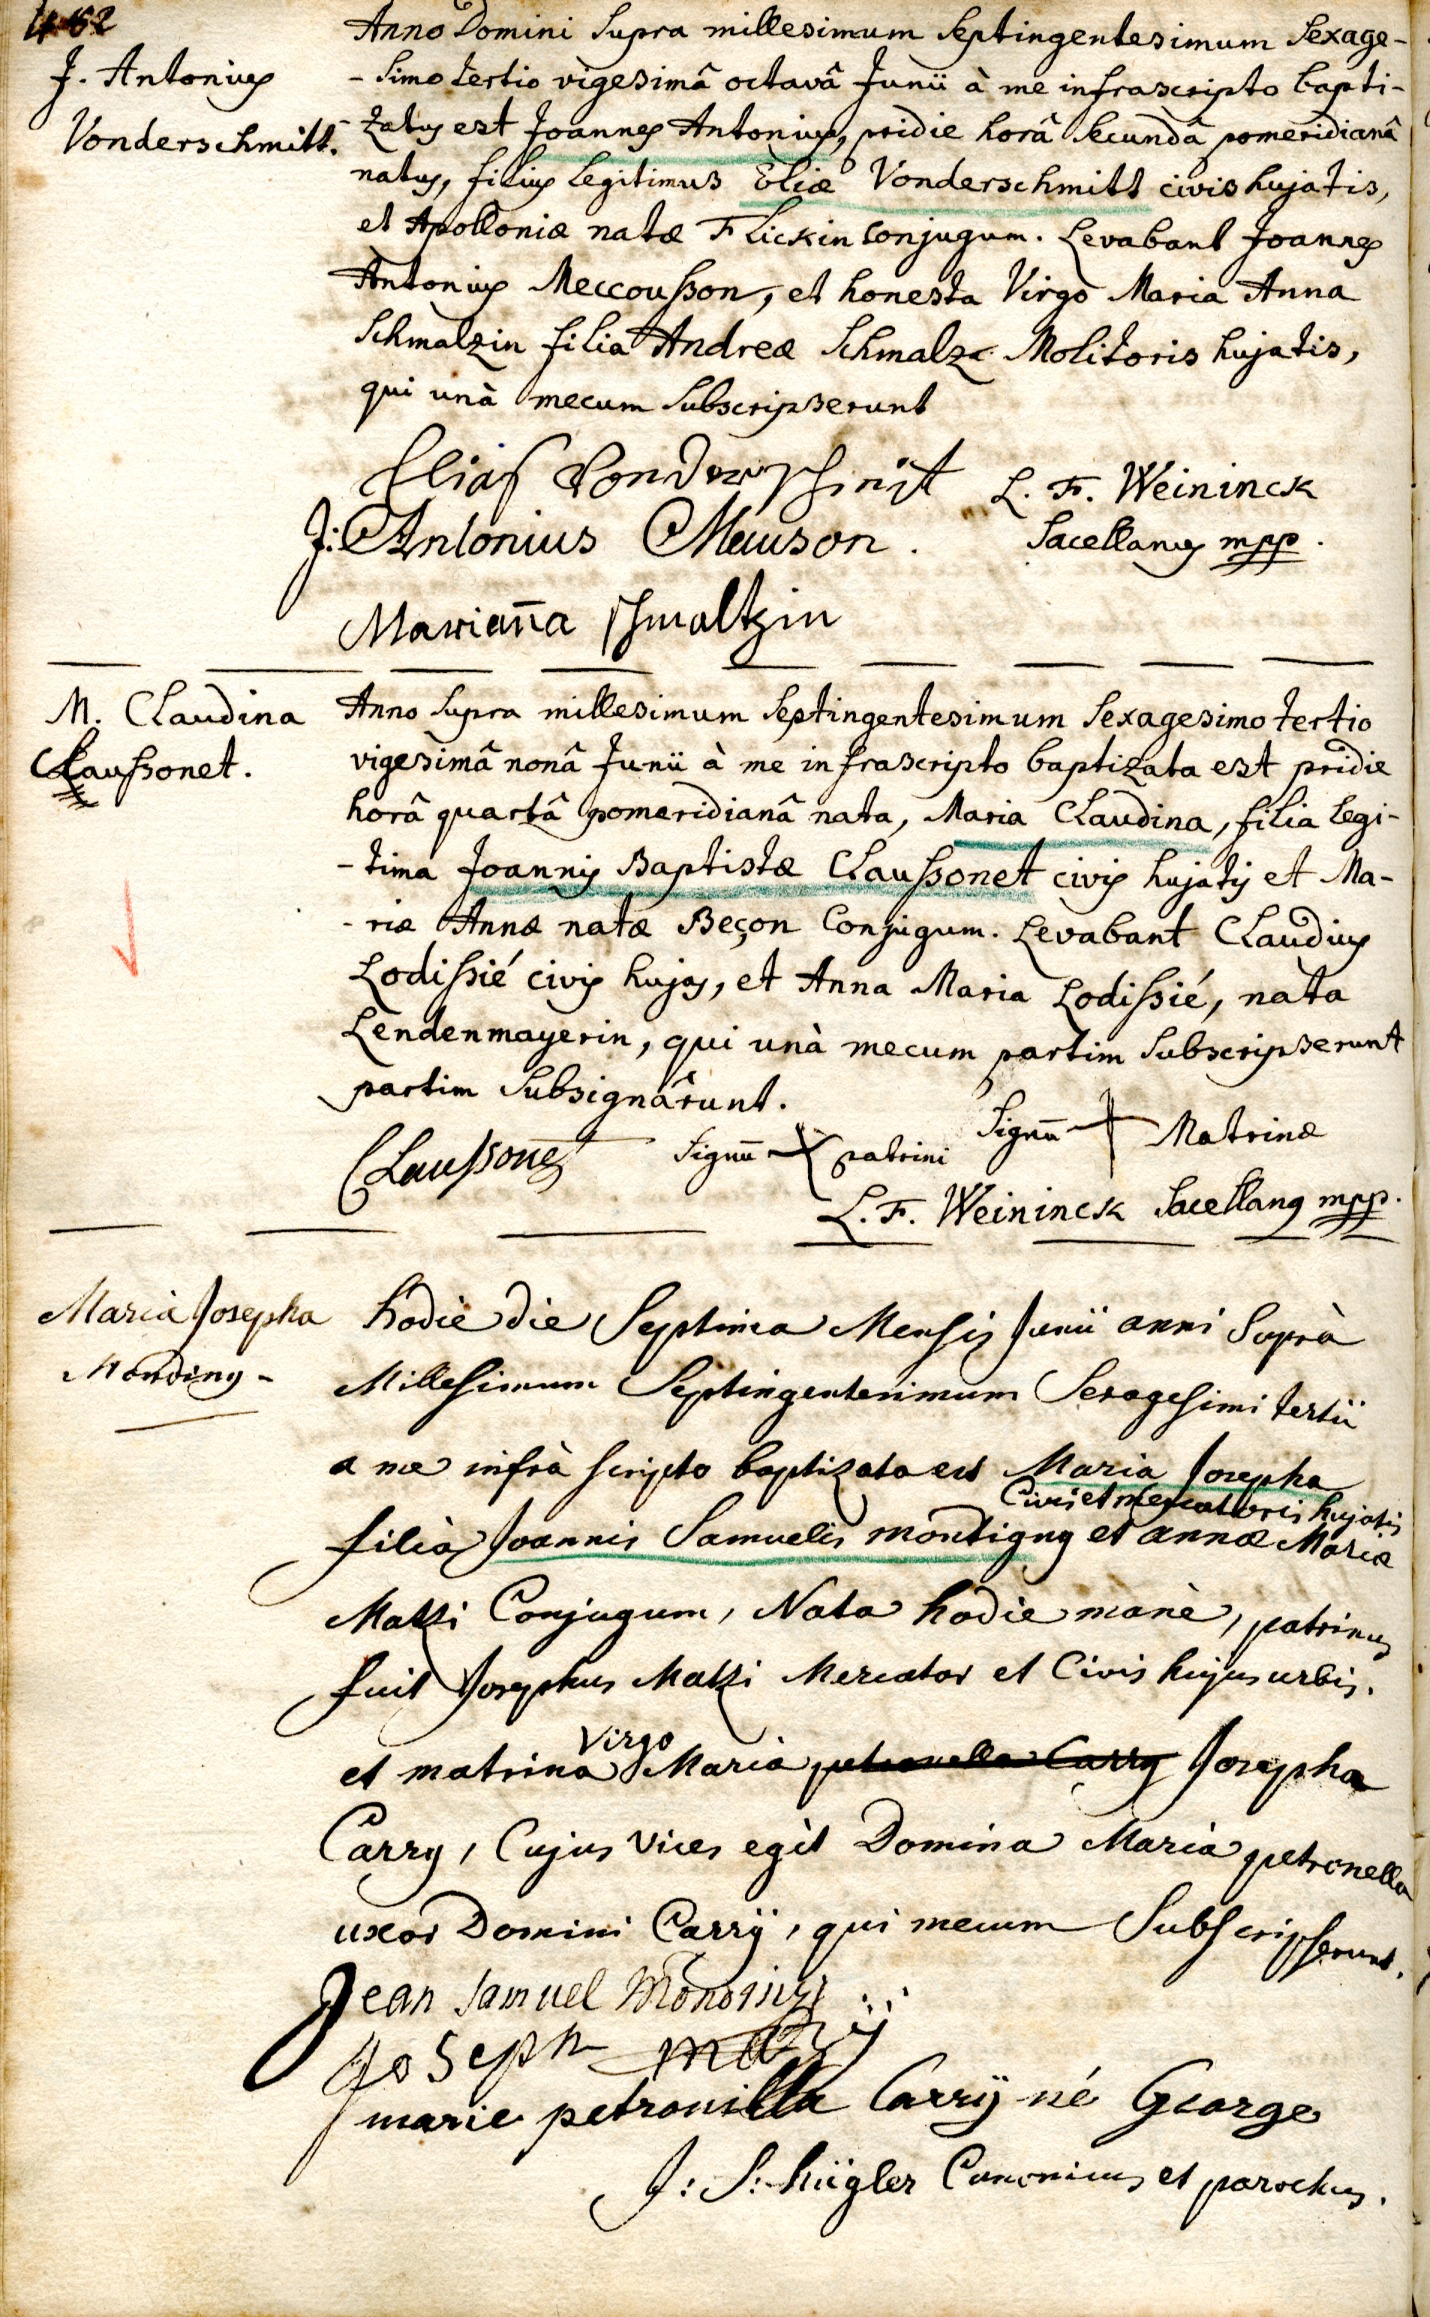 462
J. Antonius
Vonderschmitt.
Anno Domini supra millesimum septingentesimum sexage-
-simo tertio vigesimâ octavâ Junii à me infrascripto bapti-
-zatus est Joannes Antonius, pridie horâ secundâ pomeridianâ
natus, filius legitimus Eliæ Vonderschmitt civis hujatis,
et Apolloniæ natæ Flickin conjugum. Levabant Joannes
Antonius Meccousson, et honesta Virgo Maria Anna
Schmalzin filia Andreæ Schmalz Molitoris hujatis,
qui unà mecum subscripserunt
Elias Vonderschmit
L. F. Weininck
J: Antonius Meuson.
Sacellanus mpp.
Mariana Schmaltzin
M. Claudina
Claußonet.
Anno supra millesimum septingentesimum sexagesimo tertio
vigesimâ nonâ Junii à me infrascripto baptizata est pridie
horâ quartâ pomeridianâ nata, Maria Claudina, filia legi-
-tima Joannis Baptistæ Claußonet civis hujatis et Ma-
-riæ Annæ natæ Beçon Conjugum. Levabant Claudius
Lodißié civis hujas, et Anna Maria Lodißié, nata
Lendenmayerin, qui unà mecum partim subscripserunt
partim subsignârunt.
Claußonet
Signū patrini
Signū Matrinæ
L. F. Weininck Sacellanus mpp.
Maria Josepha
Mondiny-
hodie die Septima Mensis Junii anni suprà
Millesimum Septingentesimum Sexagesimi tertii
a me infrà scripto baptizata est Maria Josepha
Civis et mercatoris hujatis
filia Joannis Samuelis montigny et annæ Mariæ
Matzi Conjugum, Nata hodie manè, patrinus
fuit Josephus Matzi Mercator et Civis hujus urbis.
Virgo
et matrina Maria petronella Carry Josepha
Carry, Cujus vices egit Domina Maria petronella
uxor Domini Carrÿ, qui mecum Subscripserunt.
Jean Samuel
Joseph
marie petronilla Carrÿ né George
J: S: hügler Canonicus et parochus.